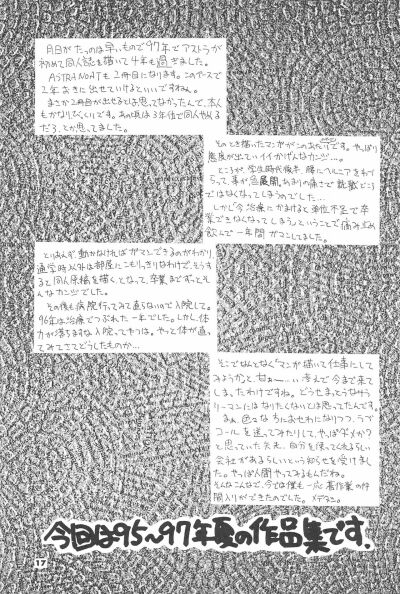 月日がたつのは早いもので97年でアストラが
初めて同人誌を描いて4年も過ぎました。
ASTRANOHTも2冊目になります。このペースで
2年おきに出せていけるといいですねぇ。
まさか2冊目が出せるとは思ってなかったんで、本人
もかなりびっくりです。あの頃は3年位で同人やめる
だろ、とか思ってました。
そのとき描いたマンガがこのあたりです。やっぱり
態度が出ていてイイかげんなカンジ…。
ところが、学生時代後半、腰にヘルニアをわず
らって、事が急展開。あまりの痛さで就職どころ
ではなくなってしまうのでした…
しかし今治療にかまけると単位不足で卒
業できなくなってしまうということで痛み止め
飲んで一年間ガマンしてました。
とりあえず動かなければガマンできるのがわかり、
通学時以外は部屋にこもりっきりなわけで、そうする
と同人原稿を描くとなって、卒業までずっとそ
んなカンジでした。
その後も病院行ってみて直らないので入院して。
96年は治療でつぶれた一年でした。しかし、体
力が落ちますな入院ってやつは。やっと体が直っ
てみてさてどうしたものか…
そこでなんとなくマンガ描いて仕事にして
みようかと、甘ぁ〜…い考えで今まで来て
しまったわけですね。どうせまっとうなサラ
リーマンにはなりたくないとは思ってたんです。
まぁ、色々な方におせわになりつつ、ラブ
コールを送ってみたりして、やっぱダメか?
と思っていた矢先、自分を使ってくれるらしい
会社があるらしいという知らせを受けまし
た。やっぱ人間やってみるもんだね。
そんなこんなで、今では僕も一応著作業の仲
間入りができたのでした。メデタシ。
今回は95〜97年夏の作品集です.
17